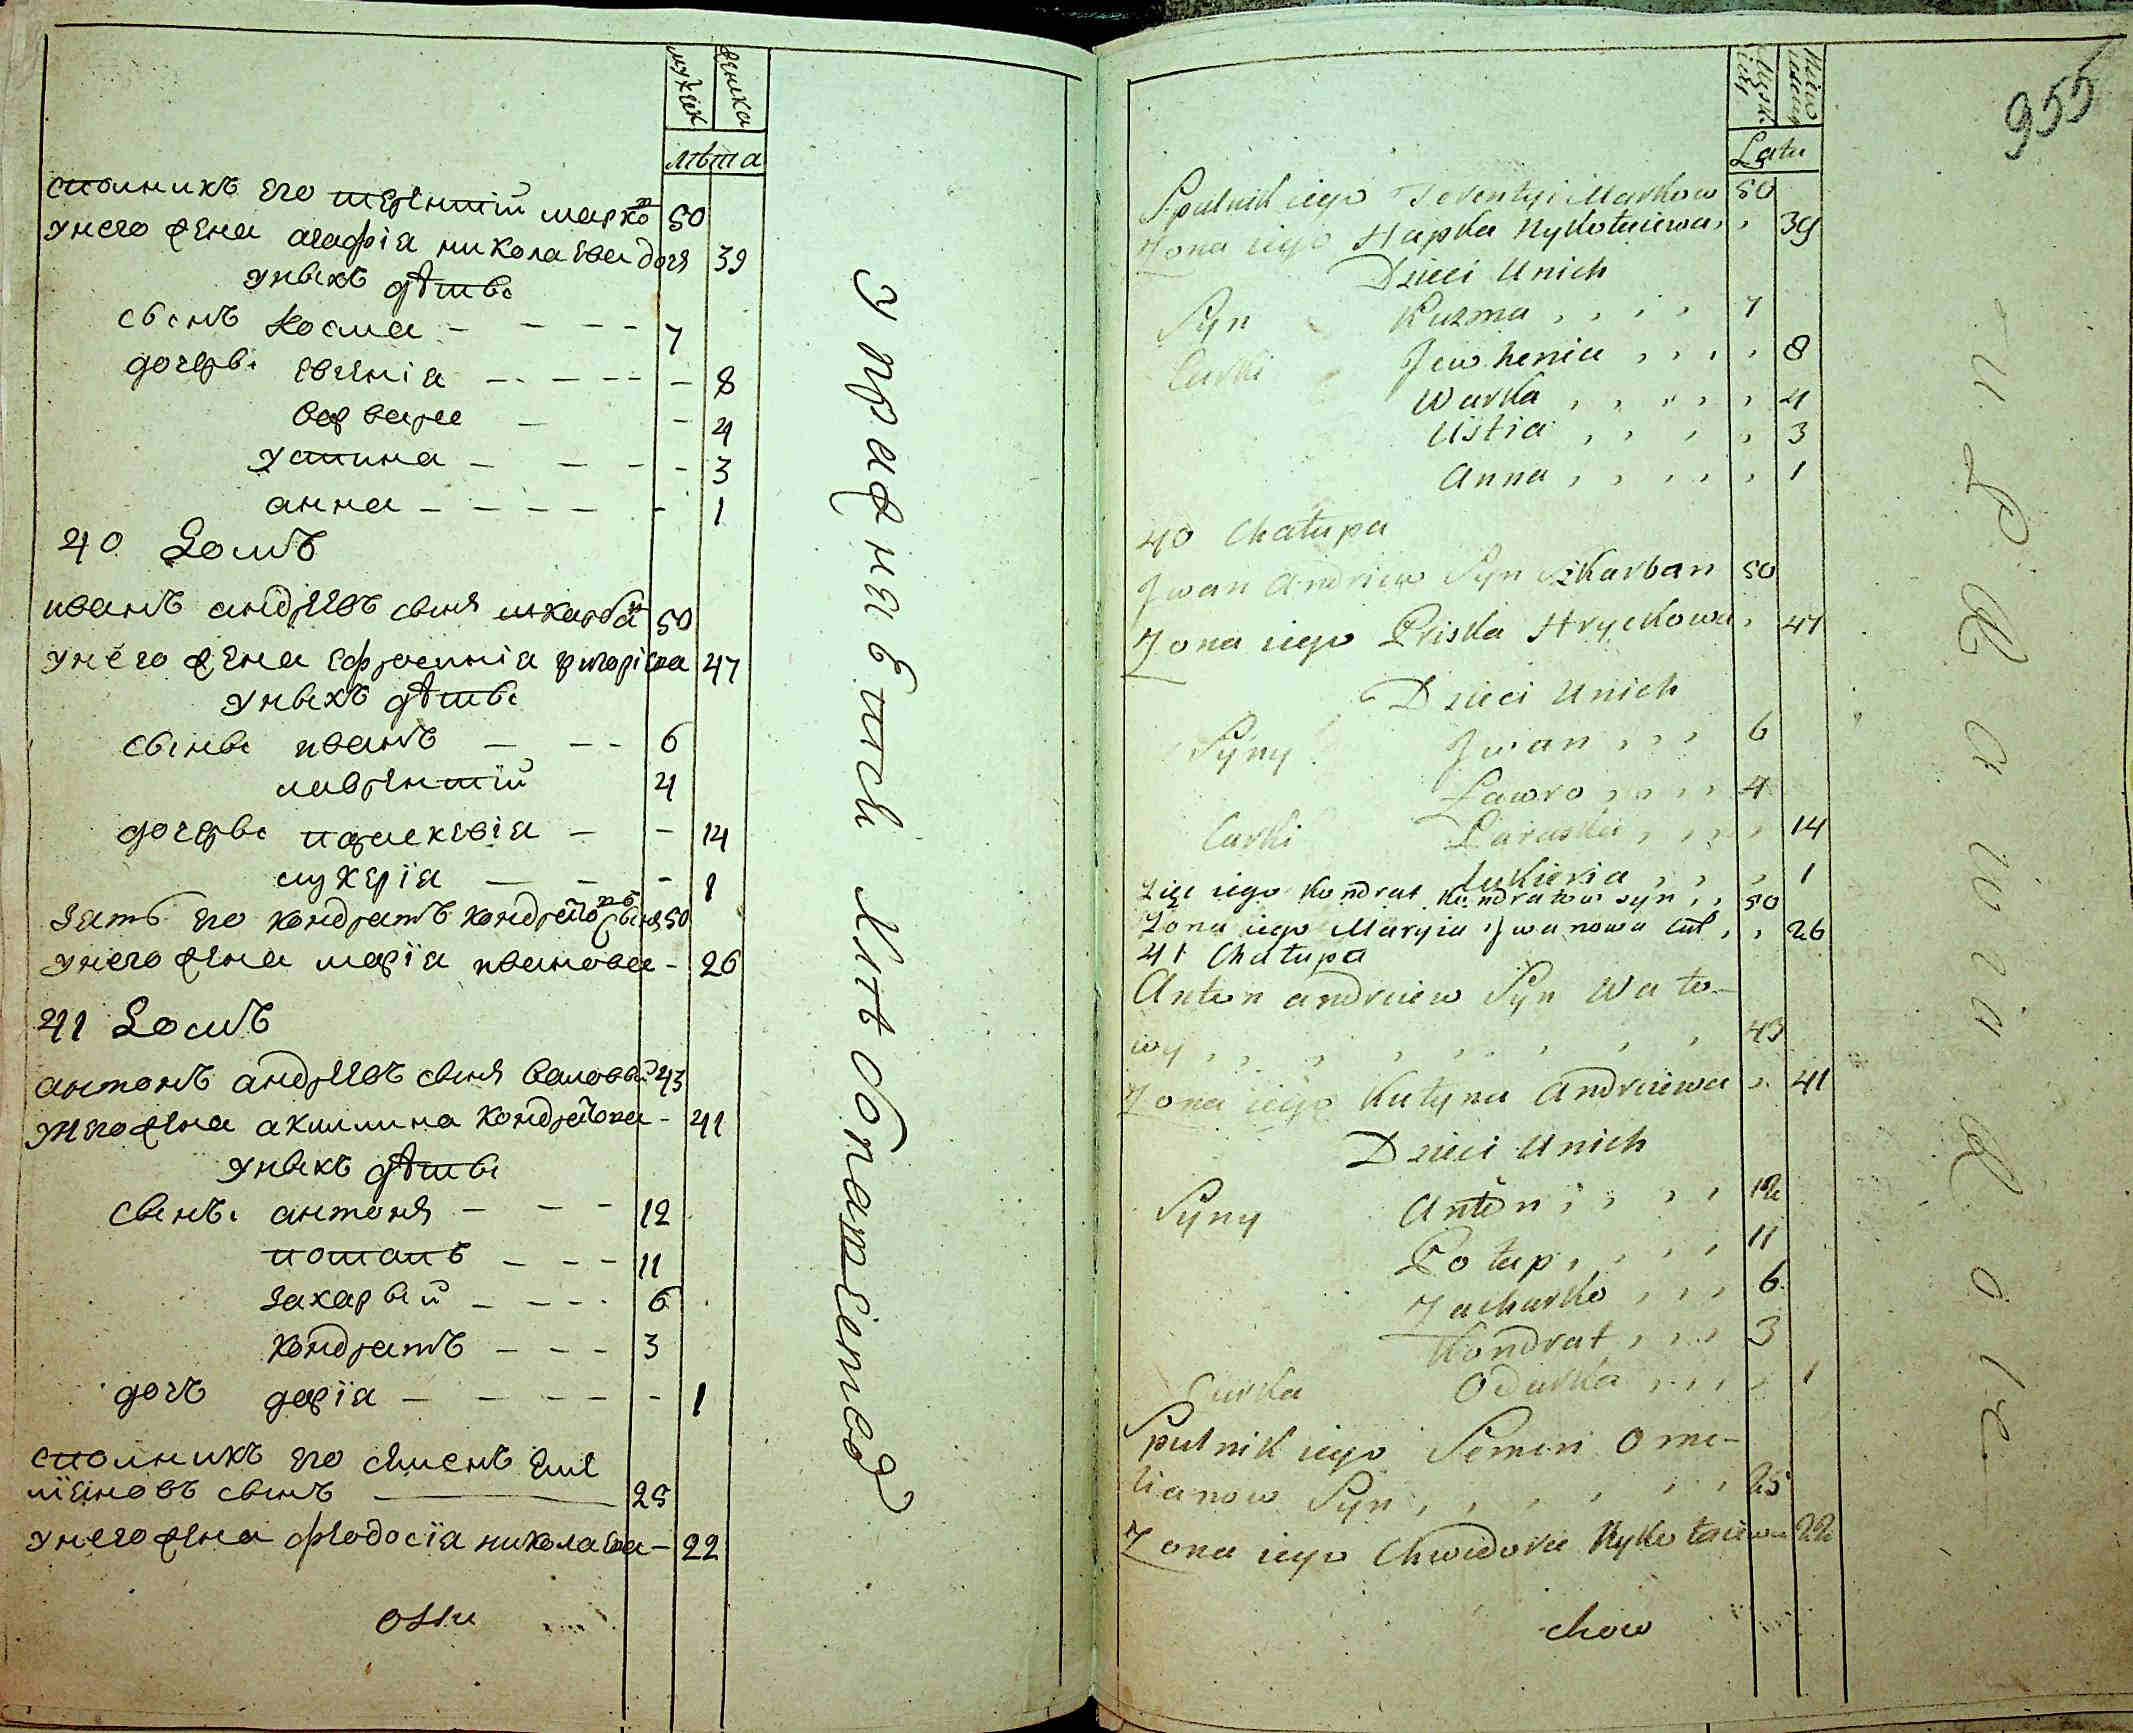 мужск женска
лѣта
сполникъ его терентій марковъ 50
унего жена агафіа николаева дочя 39
унихъ дѣты
сынъ косма 7
дочеры евгеніа 8
варвара 4
устина 3
анна 1
40 Домъ
иванъ андреевъ сыня шкарбан 50
унего жена ефросиніа григоріева 47
унихъ дѣты
сыны иванъ 6
лаврентій 4
дочеры параскевіа 14
лукеріа 1
зать его кондратъ кондратовъ сыня 50
унего жена маріа иванова 26
41 Домъ
антонъ андреевъ сыня валовый 43
унего жена акилина кондратова 41
унихъ дѣты
сынъы антоня 12
потапъ 11
захарый 6
кондратъ 3
дочъ даріа 1
сполникъ его семенъ еме
ліановъ сынъ 25
унего жена феодосіа николаева 22
Męsk iey Latu
955
Spulnik iego Terentyi Markow 50
Zona iego Hapka Nykołaiewa 39
Dzieci Unich
Syn Kuzma 7
Curki Jewhenia 8
Warka 4
Ustia 3
Anna 1
40 Chałupa
Jwan Andriew Syn Szkarban 50
Zona iego Priska Hryckowa 47
Dzieci Unich
Syny Jwan 6
Ławro 4
Curki Paraska 14
Łukieria 1
Zięc iego Kondrat Kondratow syn 50
Zona iego Maryia Jwanowa 26
41 Chałupa
Anton andriiew Syn Wało-
wy 43
Zona iego Katyna Andriiewa 41
Dzieci Unich
Syny Anton 12
Potap 11
Zacharko 6
Kondrat 3
Curka Odarka 1
Spulnik iego Semen Ome-
lianow Syn 25
Zona iego Chwedora Nykołaiewa 22
chow